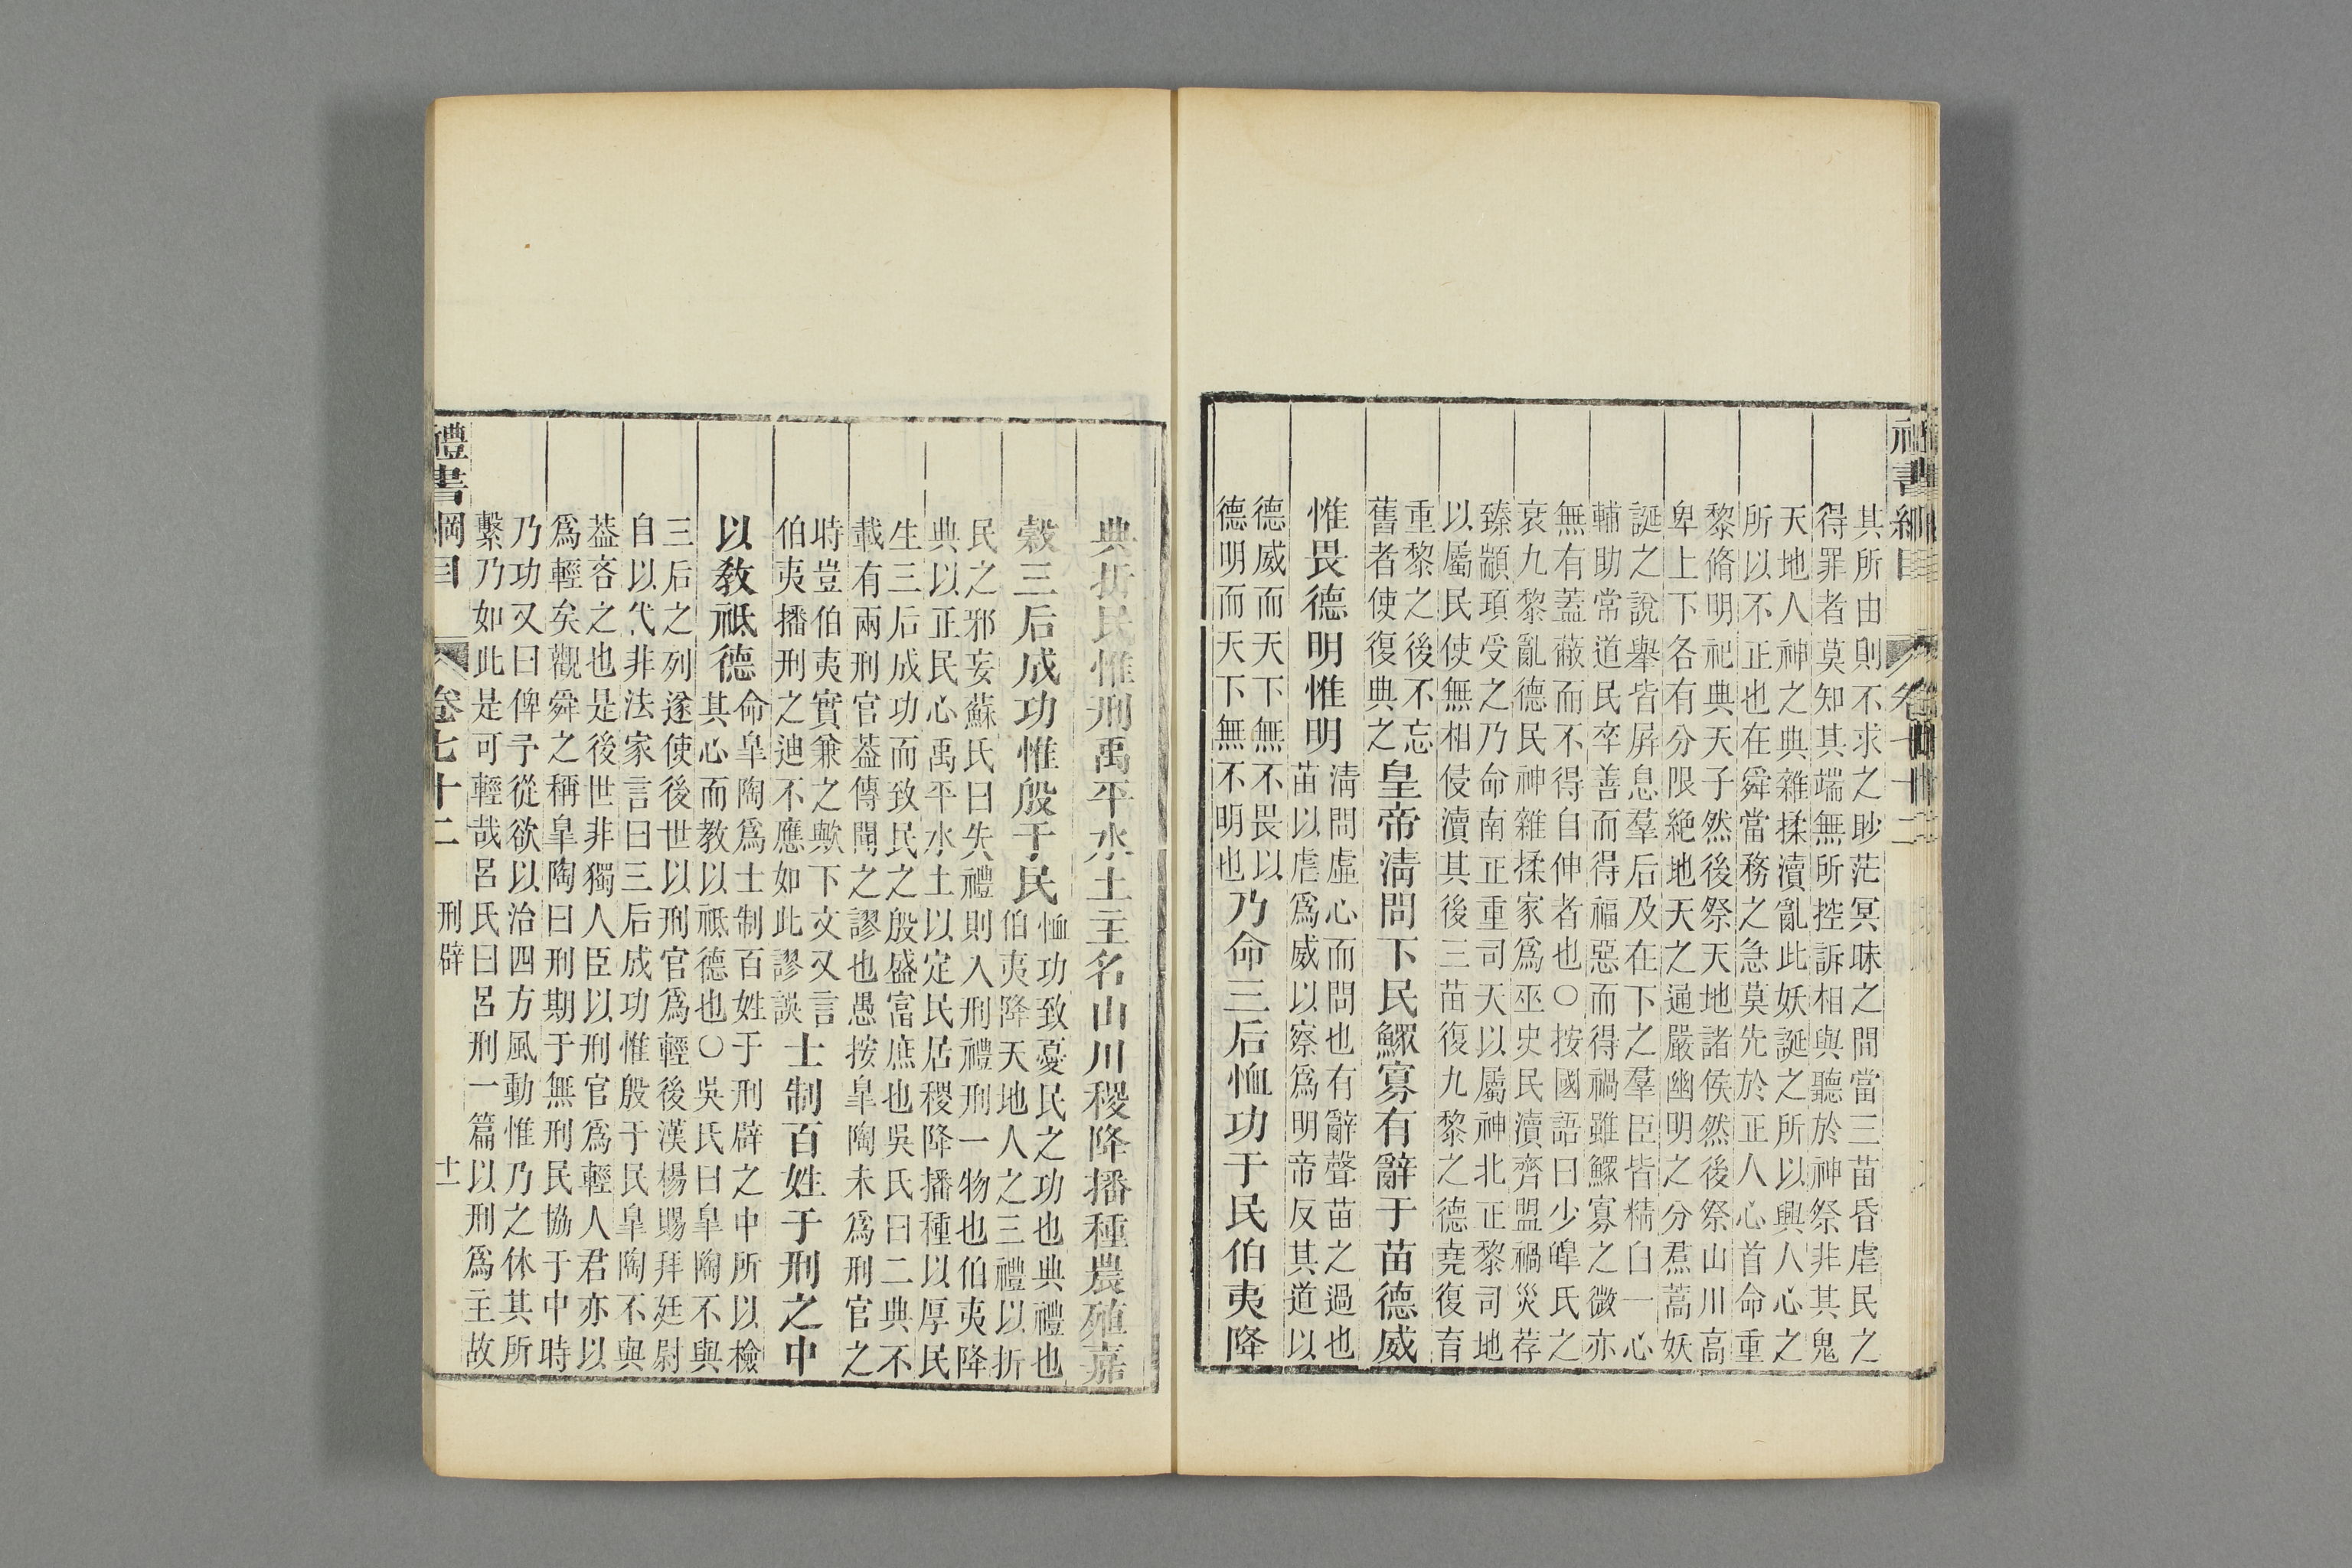 其所由則不求之眇茫冥昧之間當三苗昏虐民之
得罪者莫知其端無所控訴相與聽於神祭非其鬼
天地人神之典雜揉瀆亂此妖誕之所以興人心之
所以不正也在舜當務之急莫先於正人心首命重
黎脩明祀典天子然後祭天地諸侯然後祭山川高
卑上下各有分限絶地天之通嚴幽明之分焄蒿妖
誕之說舉皆屏息羣后及在下之羣臣皆精白一心
輔助常道民卒善而得福惡而得禍雖鰥寡之微亦
無有蓋蔽而不得自伸者也○按國語曰少皥氏之
衰九黎亂德民神雜揉家爲巫史民瀆齊盟禍災荐
臻顓頊受之乃命南正重司天以屬神北正黎司地
以屬民使無相侵瀆其後三苗復九黎之德堯復育
重黎之後不忘
舊者使復典之
皇帝清問下民鰥寡有辭于苗德威
惟畏德明惟明
清問虛心而問也有辭聲苗之過也
苗以虐爲威以察爲明帝反其道以
德威而天下無不畏以
德明而天下無不明也
乃命三后恤功于民伯夷降
典折民惟刑禹平水土主名山川稷降播種農殖嘉
穀三后成功惟殷于民
恤功致憂民之功也典禮也
伯夷降天地人之三禮以折
民之邪妄蘇氏曰失禮則入刑禮刑一物也伯夷降
典以正民心禹平水土以定民居稷降播種以厚民
生三后成功而致民之殷盛富庶也吳氏曰二典不
載有兩刑官葢傳聞之謬也愚按皐陶未爲刑官之
時豈伯夷實兼之歟下文又言
伯夷播刑之迪不應如此謬誤
士制百姓于刑之中
以敎祗德
命皐陶爲士制百姓于刑辟之中所以檢
其心而教以祗德也○吳氏曰皐陶不與
三后之列遂使後世以刑官爲輕後漢楊賜拜廷尉
自以代非法家言曰三后成功惟殷于民皐陶不與
葢吝之也是後世非獨人臣以刑官爲輕人君亦以
爲輕矣觀舜之稱皐陶曰刑期于無刑民協于中時
乃功又曰俾予從欲以治四方風動惟乃之休其所
繫乃如此是可輕哉呂氏曰呂刑一篇以刑爲主故
禮書綱目 卷七十二 刑辟 十一